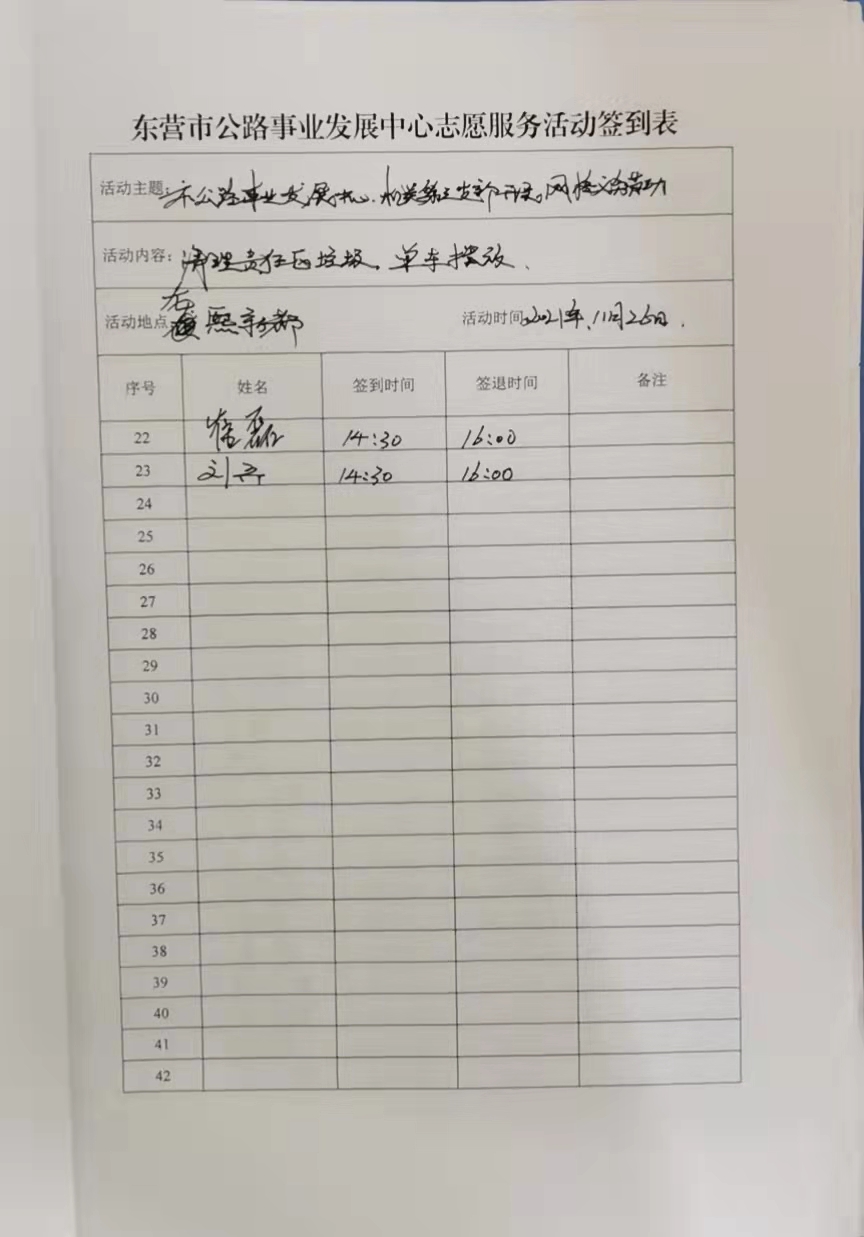 东营市公路事业发展中心志愿服务活动签到表
活动主题：市公路事业发展中心机关第三支部开展网格义务劳动
活动内容：清理责任区垃圾，单车摆放.
活动地点 熙新都 活动时间：2021年11月26日.
序号 姓名 签到时间 签退时间 备注
22 磊 14:30 16:00
23 刘 14:30 16:00
24
25
26
27
28
29
30
31
32
33
34
35
36
37
38
39
40
41
42